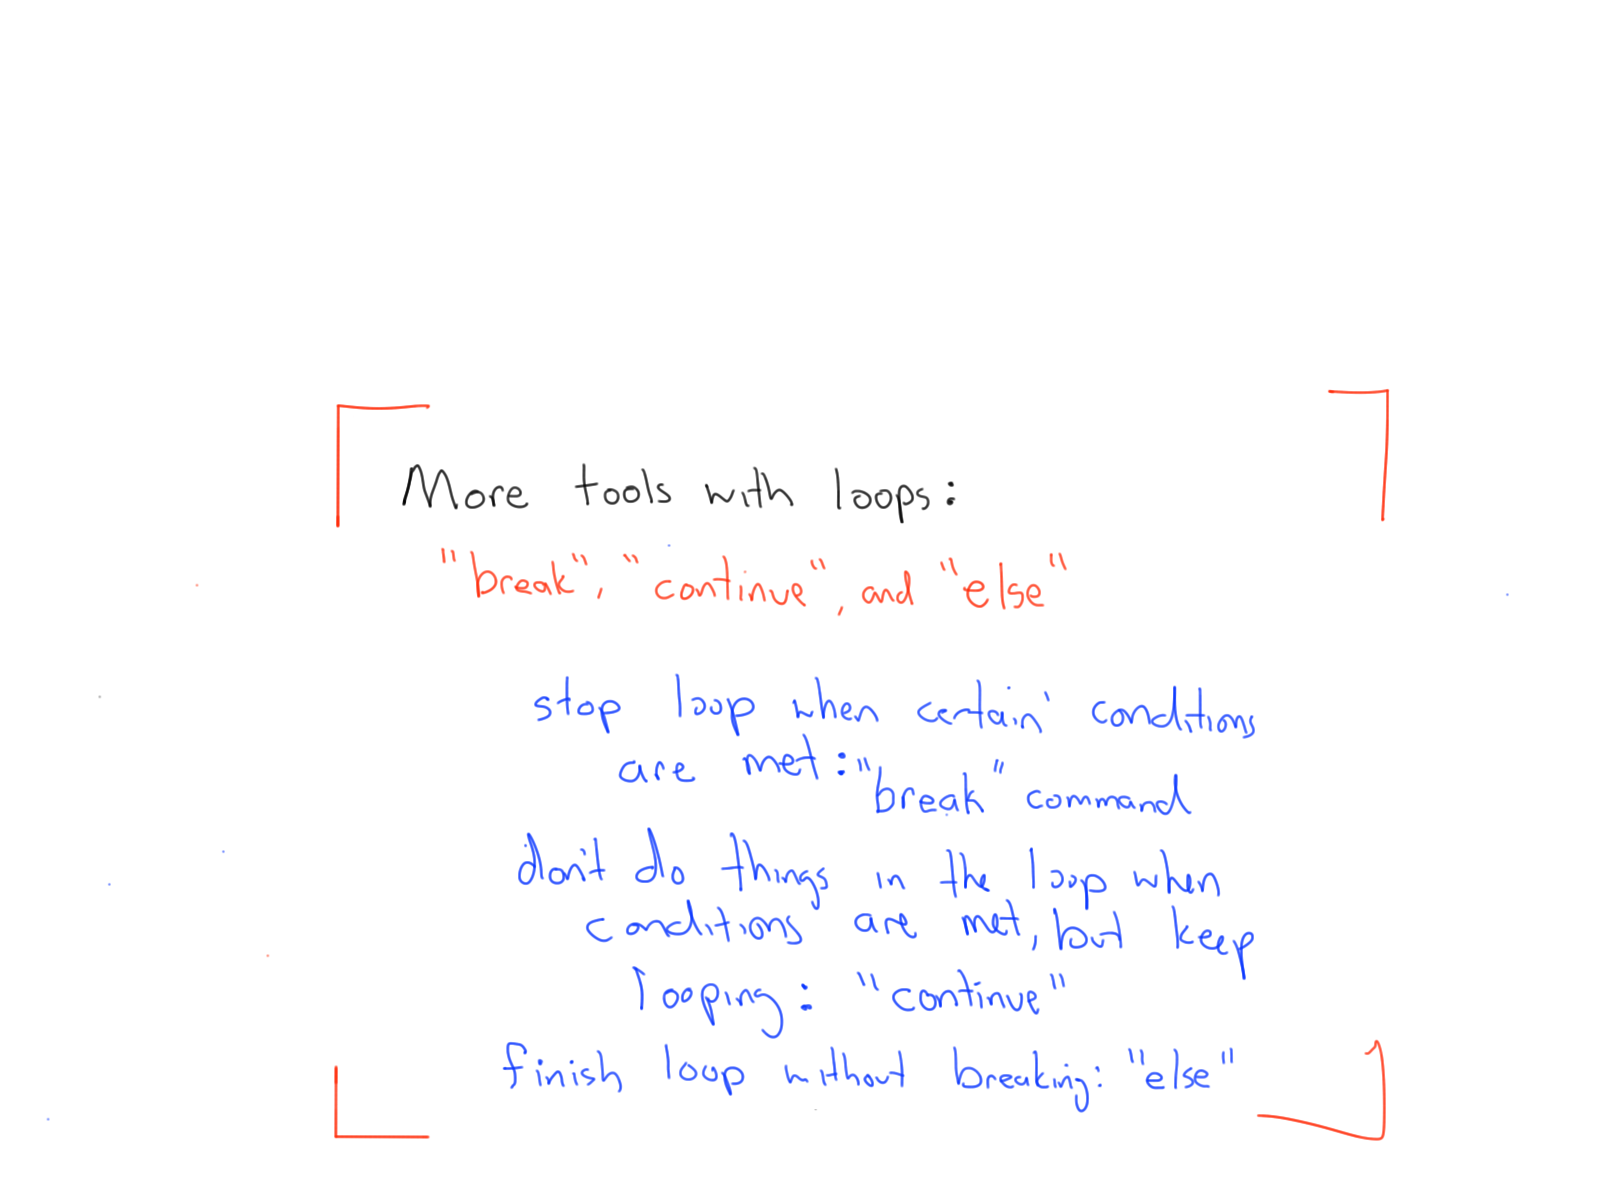 More tools with loops:
"break", "continue", and "else"
stop loop when certain conditions
are met: "break" command
don't do things in the loop when
conditions are met, but keep
looping: "continue"
finish loop without breaking: "else"